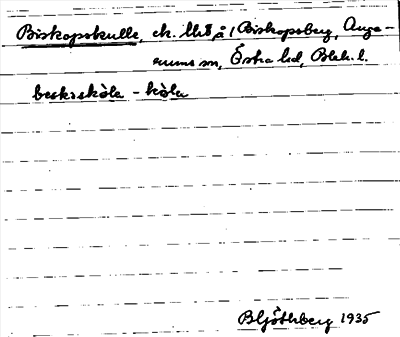 Biskopskulle, ek. 118, å 1 Biskopsberg, Ange-
rums sn, Östra hd, Blek. l.
beskəskòla - kòla
B Göthberg 1935